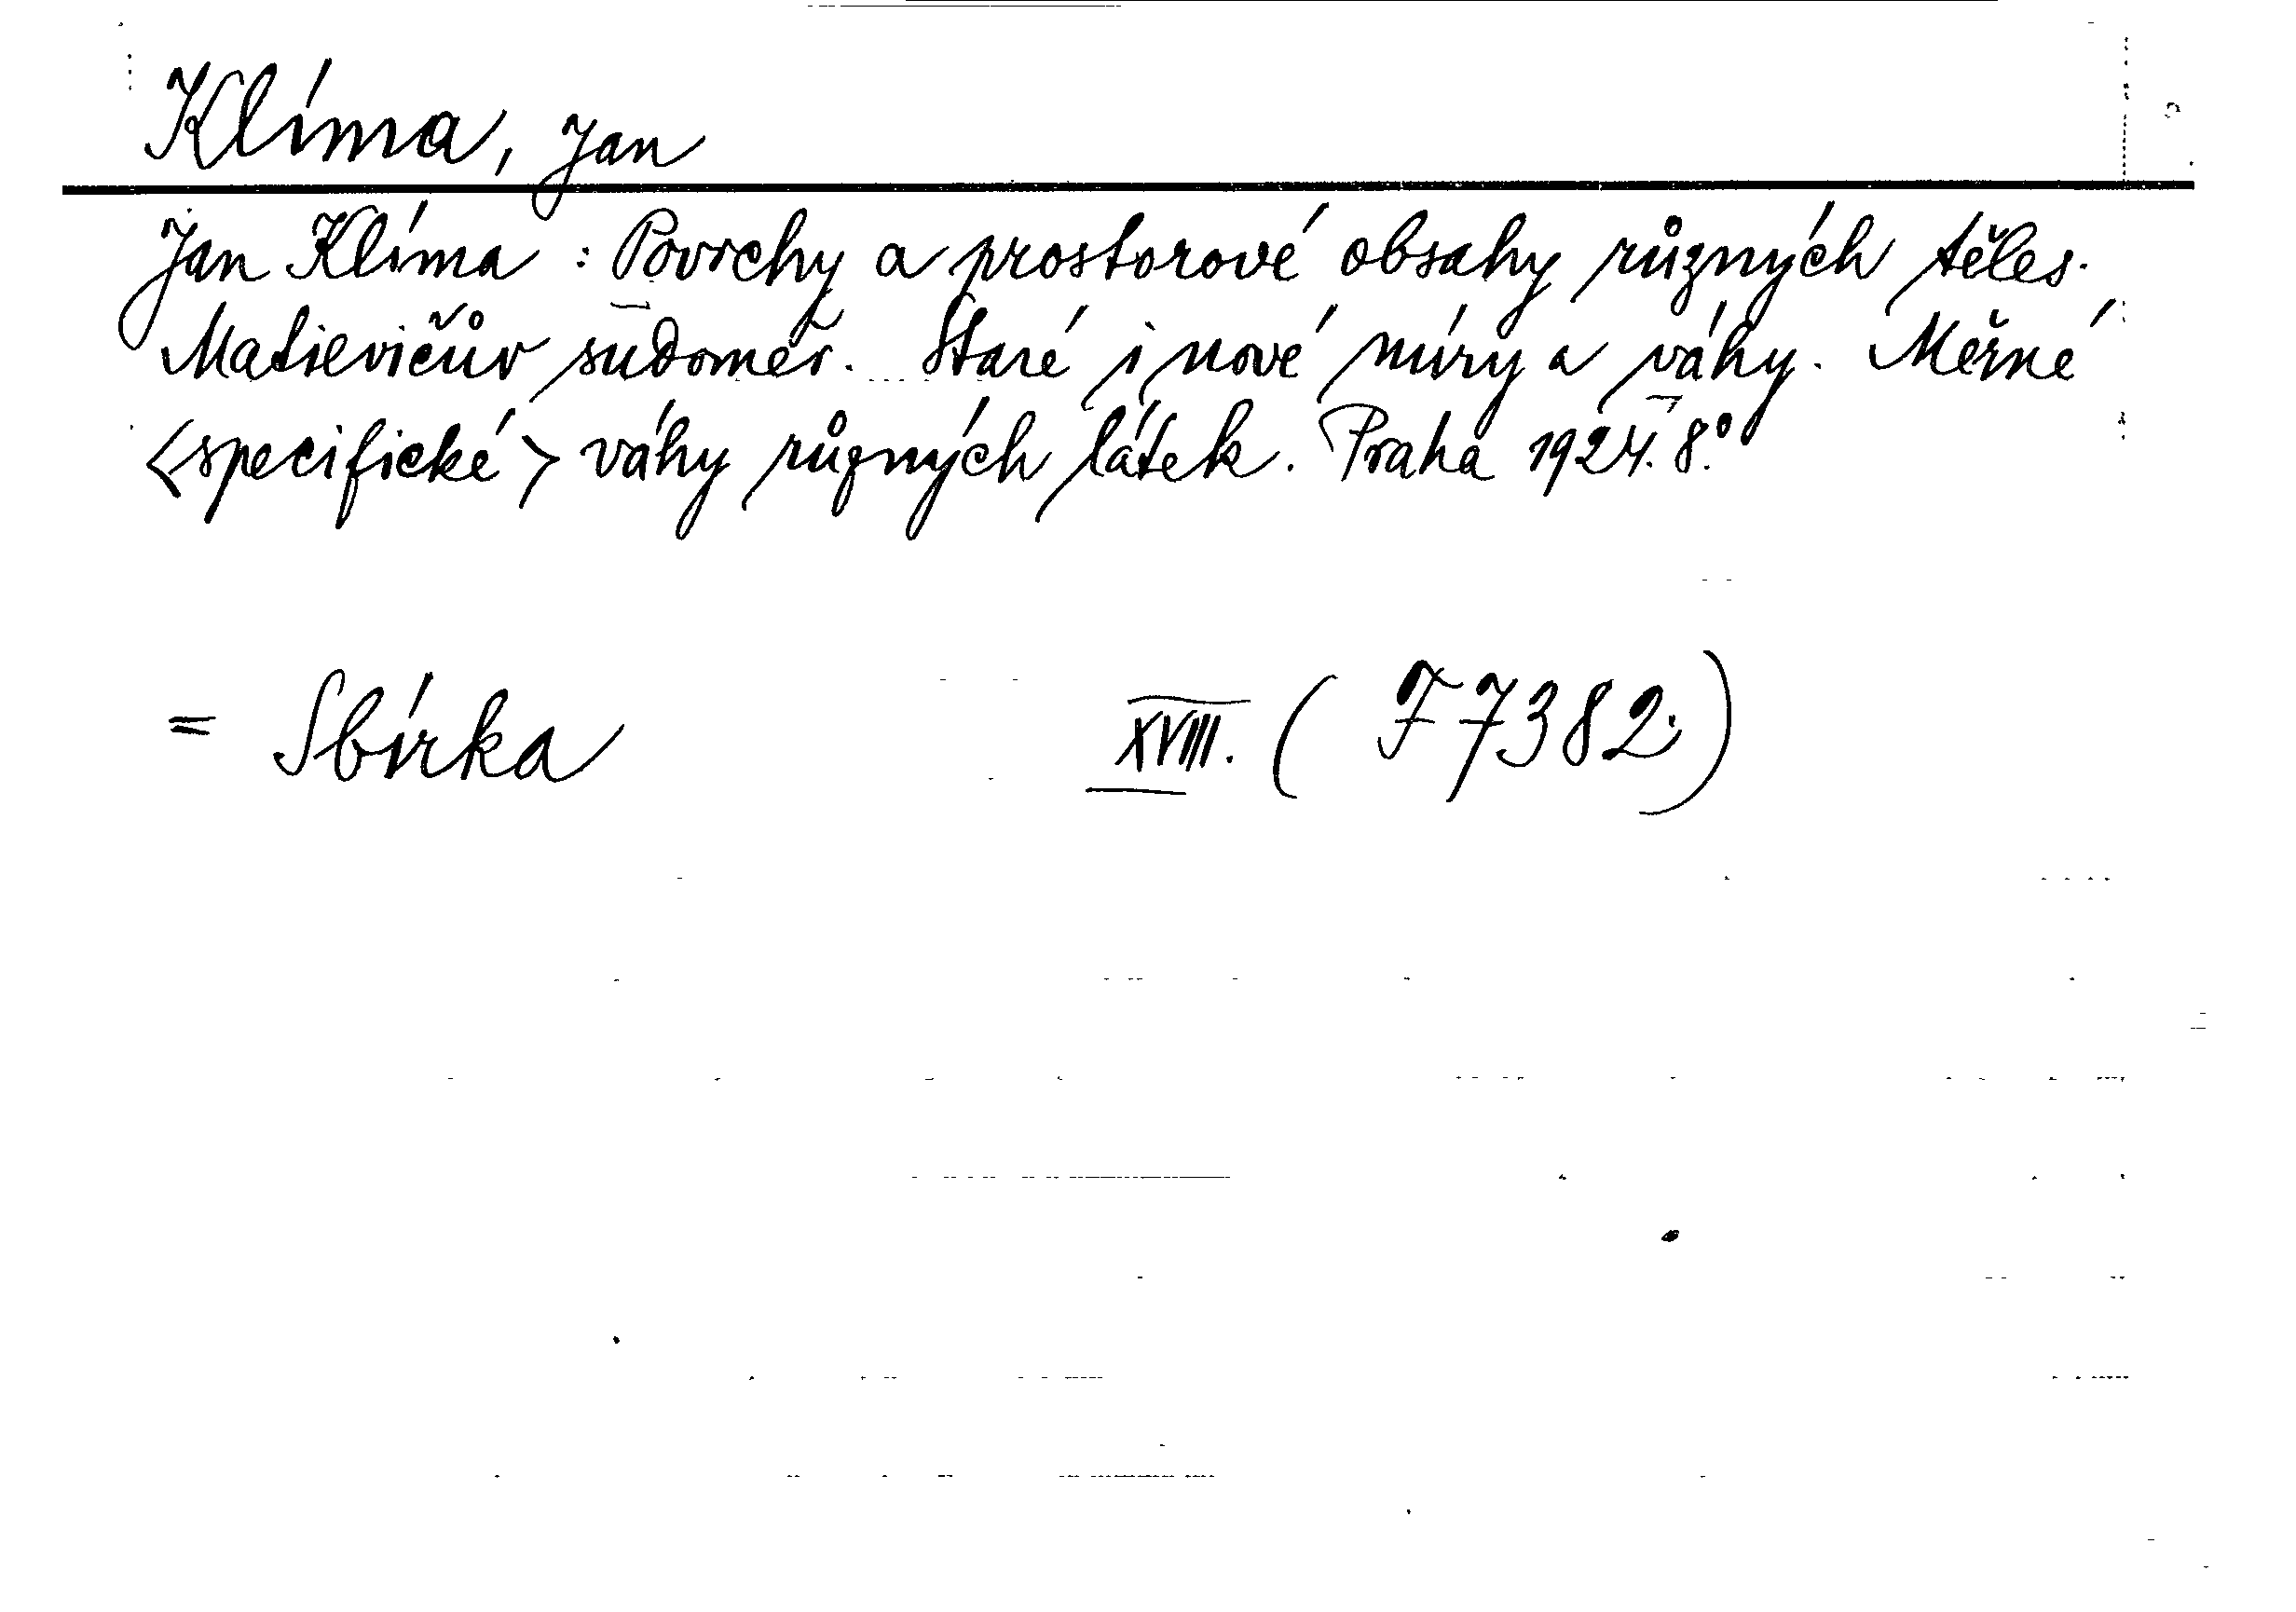 Klíma, Jan
Jan Klíma : Povrchy a prostorové obsahy různých těles.
Matievičův sudoměr. Staré i nové míry a váhy. Měrné
<specifické> váhy různých látek. Praha 1924. 8.°
= Sbírka XVIII. ( F 7382.)